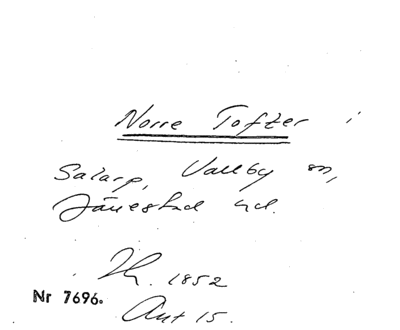 Norre Tofter i
Salarp, Vallby sn,
Järrestad hd.
Th. 1852
Nr 7696.
Ant 15.